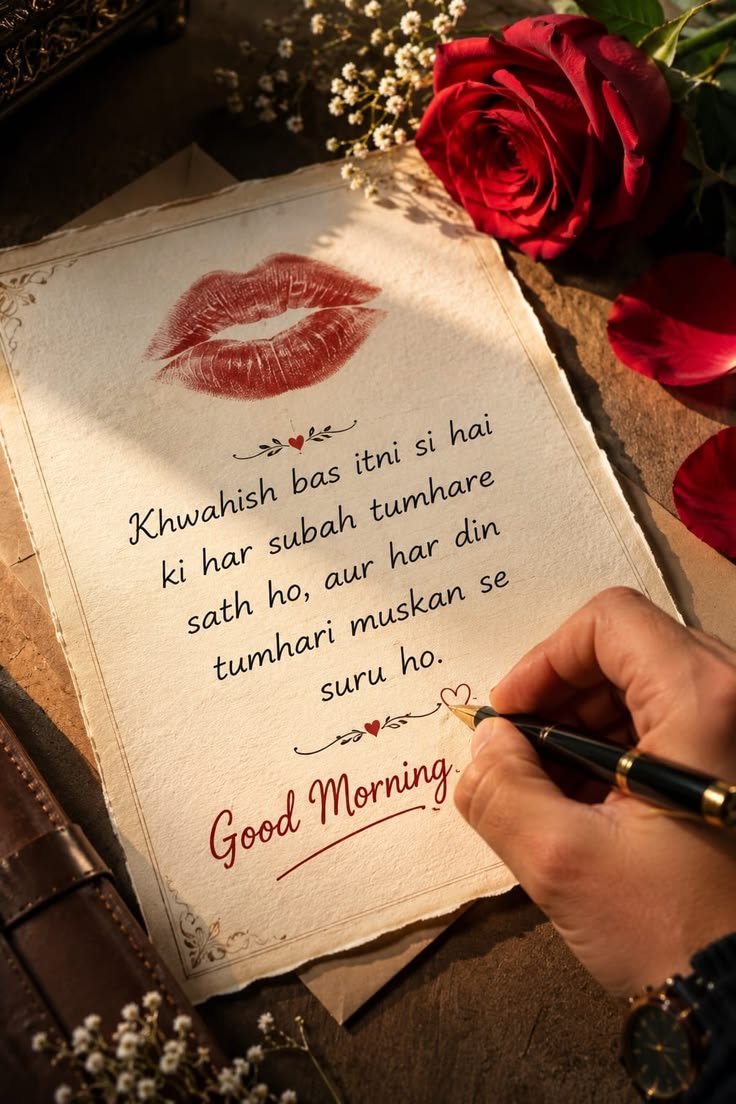 Khwahish bas itni si hai
ki har subah tumhare
sath ho, aur har din
tumhari muskan se
suru ho.
Good Morning